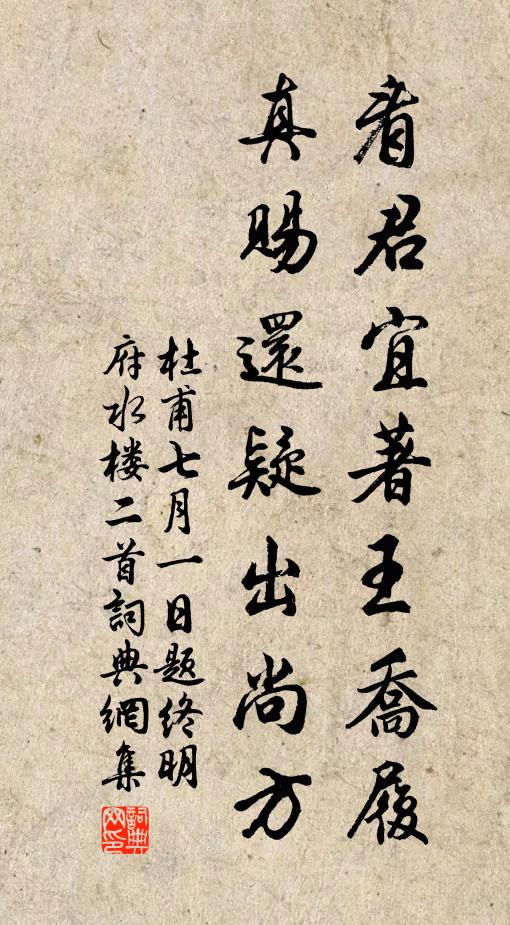 看君宜著王喬履
真賜還疑出尚方
杜甫七月一日题终明
府水楼二首詞典網集
詞典
网印